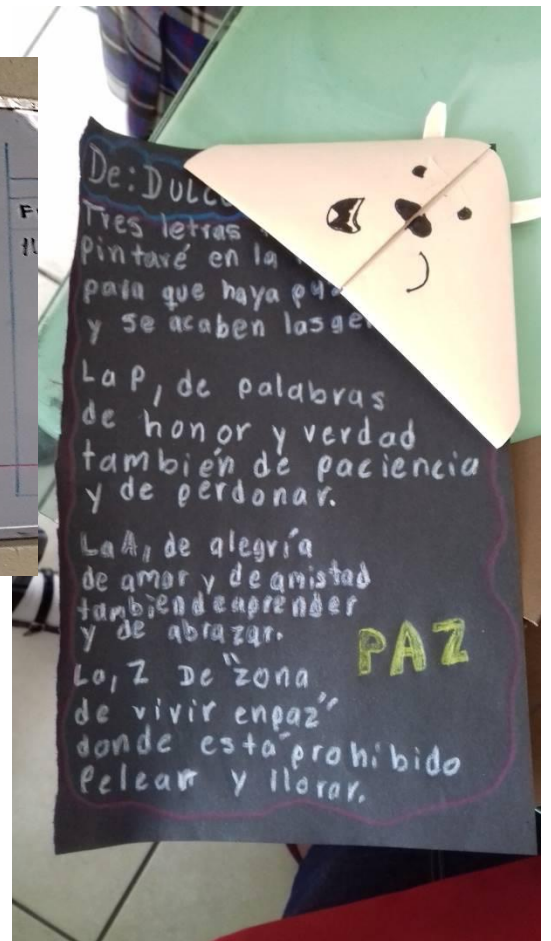 De: DULC
Tres letras
pintaré en la
para que haya
y se acaben las
La P, de palabras
de honor y verdad
también de paciencia
y de perdonar.
La A, de alegría
de amor y de amistad
tambien de aprender
y de abrazar.
PAZ
La, Z De "zona
de vivir enpaz"
donde está prohibido
Pelear y llorar.